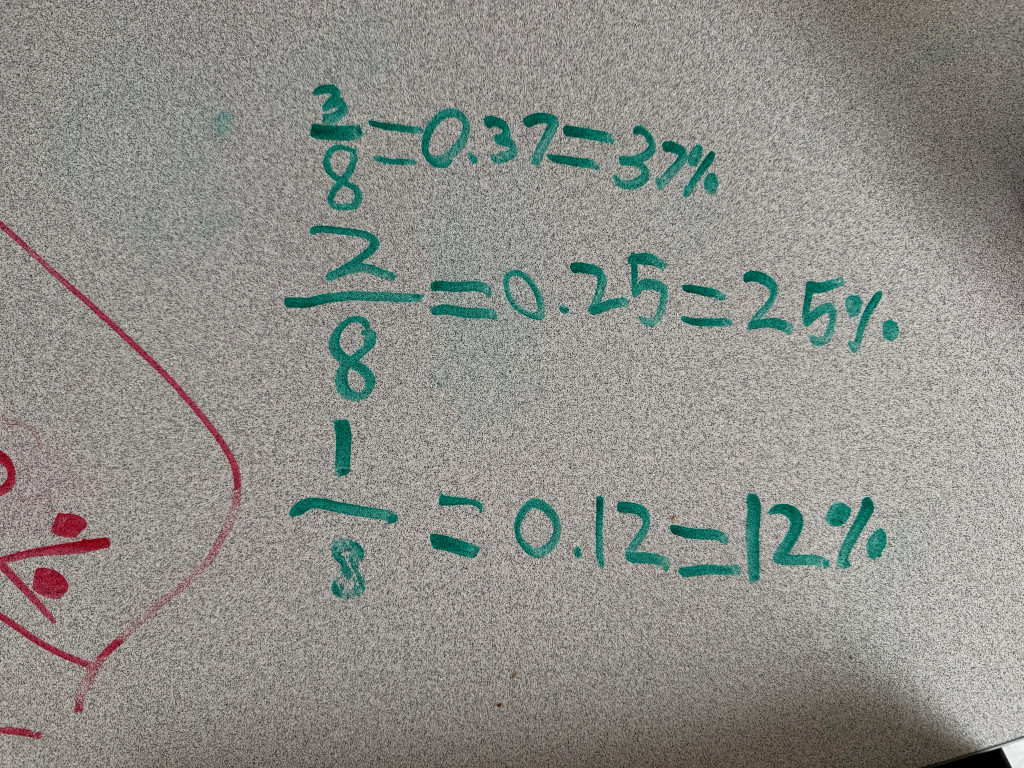 3/8=0.37=37%
2/8=0.25=25%
1/8=0.12=12%